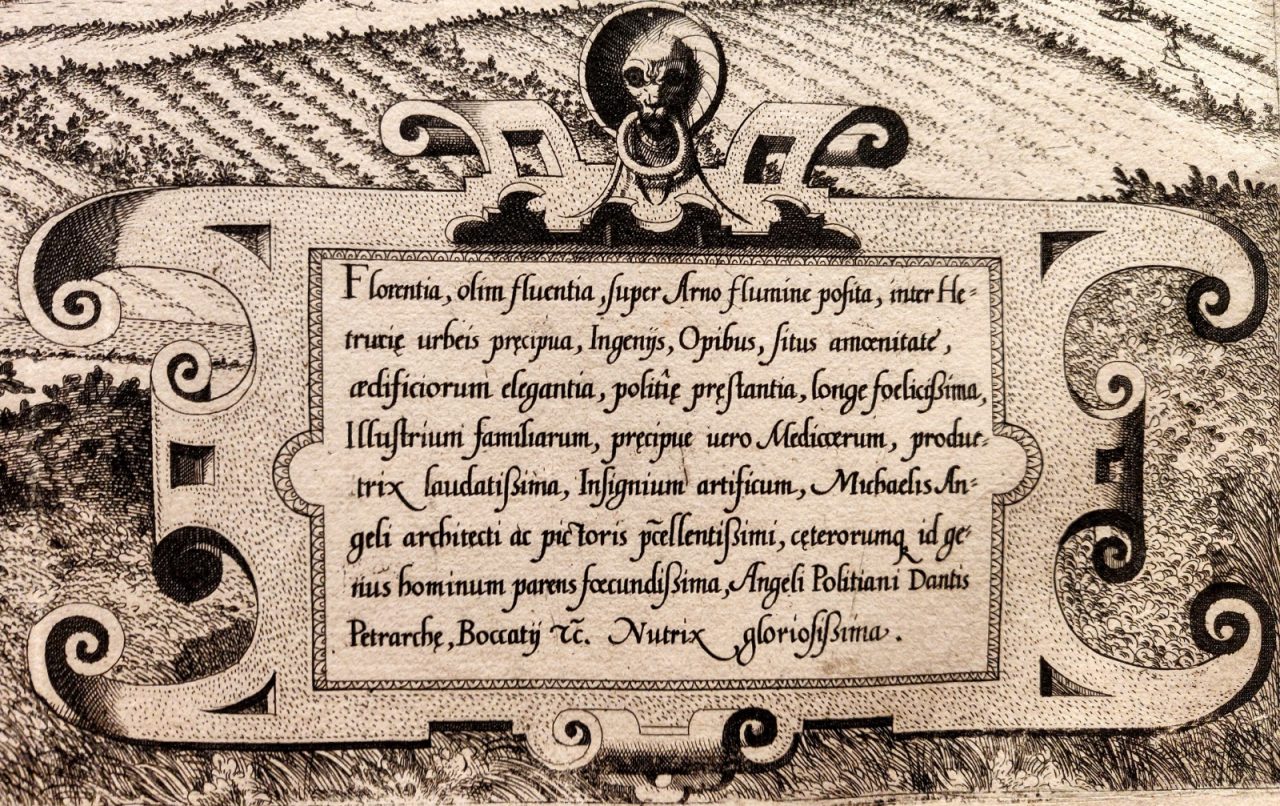 Florentia, olim fluentia, ſuper Arno flumine poſita, inter He-
trurię urbeis pręcipua, Ingenijs, Opibus, ſitus amœnitate,
ædificiorum elegantia, politię pręſtantia, longe foeliciſsima,
Illuſtrium familiarum, pręcipue uero Medicœrum, produc-
trix laudatiſsima, Inſignium artificum, Michaelis An-
geli architecti ac pictoris p̄cellentiſsimi, cęterorumq id ge-
nus hominum parens fœcundiſsima, Angeli Politiani Dantis
Petrarchę, Boccatij ⁊c̄. Nutrix glorioſiſsima.